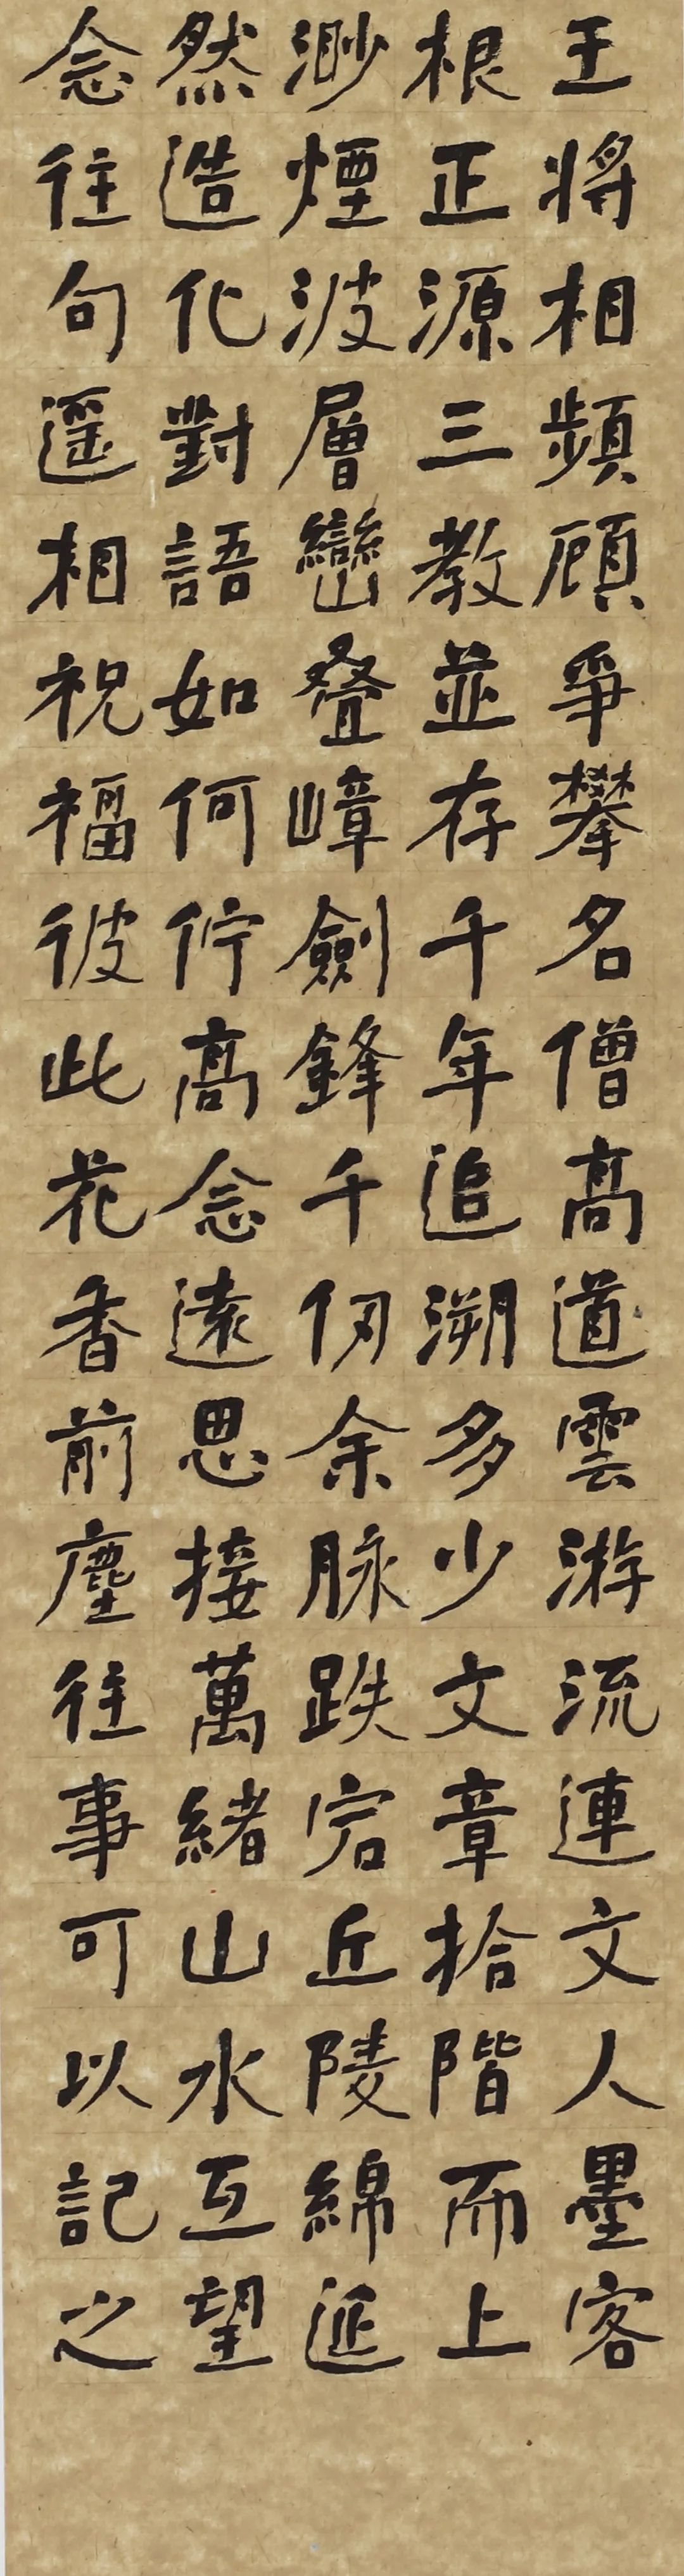 王將相頻顧爭攀名僧高道雲游流連文人墨客
根正源三教並存千年追溯多少文章拾階而上
渺煙波層巒叠嶂劍鋒千仞余脉跌宕丘陵綿延
然造化對語如何佇高念遠思接萬緒山水互望
念往句遥相祝福彼此花香前塵往事可以記之